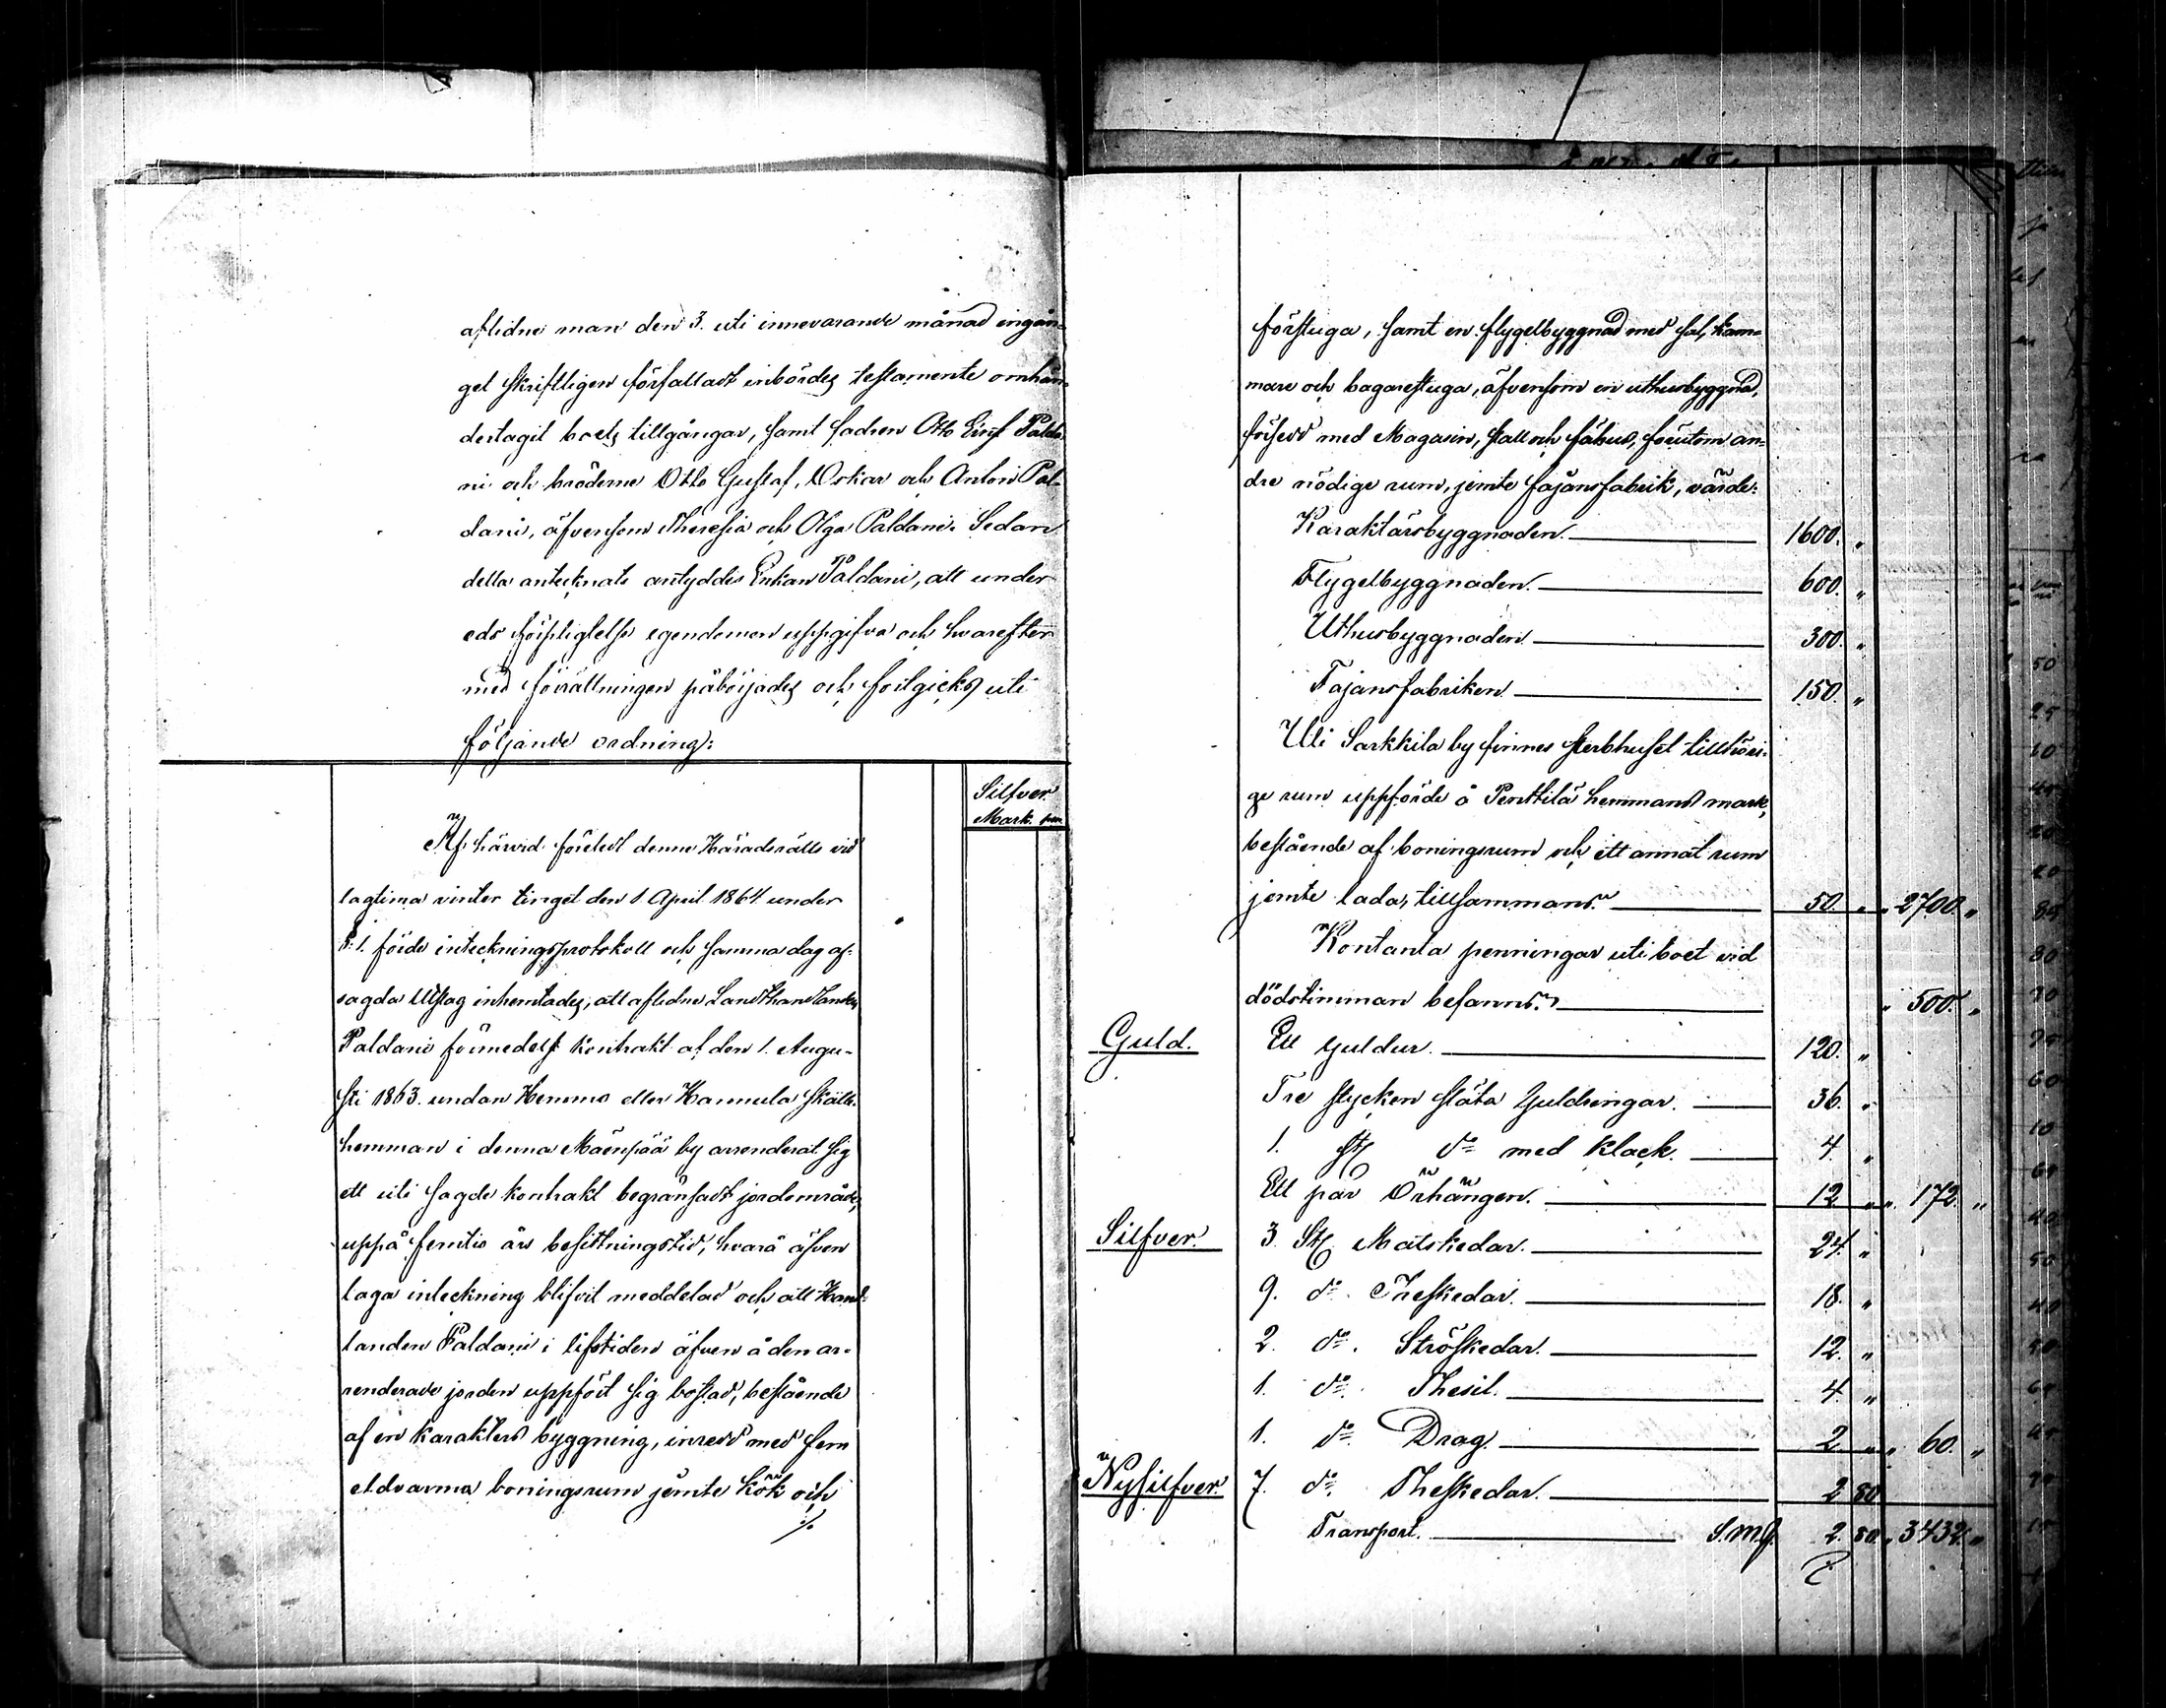 aflidne man den 3. uti innevarande månad ingån-
get skriftligen författadt inbördes testamente omhän-
dertagit boets tillgångar, samt fadren Otto Einf Palda-
ni och bröderne Otto Gustaf, Oskar och Anton Pal-
dani, äfvensom Theresia och Olga Paldani. Sedan
detta antecknats antyddes Enkan Paldani, att under
eds förpligtelse egendomen uppgifva och hvarefter
med förrättningen påbörjades och fortgicks uti
följande ordning:
Silfver
Mark. pen
Af härvid företedt denne Häradsrätts vid
lagtima vinter tinget den 1 April 1864 under
§: 1. förde inteckningsprotokoll och samma dag af-
sagda Utslag inhemtades, att aflidne Landthandlanden
Paldani förmedelst Kontrakt af den 1. Augu-
sti 1863. undan Hemmo eller Hannula Skatte-
hemman i denna Mäenpää by arrenderat sig
ett uti sagde kontrakt begränsadt jordområde,
uppå femtio års besittningstid, hvarå äfven
laga inteckning blifvit meddelad och att Hand-
landen Paldani i lifstiden äfven å den ar-
renderade jorden uppfört sig bostad, bestående
af en karakters byggning, inredd med fem
eldvarma boningsrum jemte Kök och
./.
förstuga, samt en flygelbyggnad med sal, kam-
mare och bagarestuga, äfvensom en uthusbyggnad,
försedd med Magasin, stall och fähus, förutom an-
dre nödige rum, jemte fajansfabrik, värde:
Karaktärsbyggnaden. 1600. "
Flygelbyggnaden. 600. "
Uthusbyggnaden 300. "
Fajansfabriken 150. "
Uti Sarkkila by finnes sterbhuset tillhöri-
ge rum uppförde å Penttilä hemmans mark,
bestående af boningsrum och ett annat rum
jemte lada, tillsammans 50. " " 2700. "
Kontanta penningar uti boet vid
dödstimman befanns " 500. "
Guld. Ett Guldur. 120. "
Tre stycken släta Guldringar. 36. "
1. st do med klack. 4. "
Ett par Örhängen. 12 " " 172. "
Silfver. 3. St Matskedar. 24. "
9. do. Theskedar. 18. "
2. do. Ströskedar. 12. "
1. do. Thesil. 4. "
1. do. Drag. 2 " " 60. "
Nysilfver. 7. do. Theskedar. 2 80
Transport. S.m. 2. 80. " 3432. "